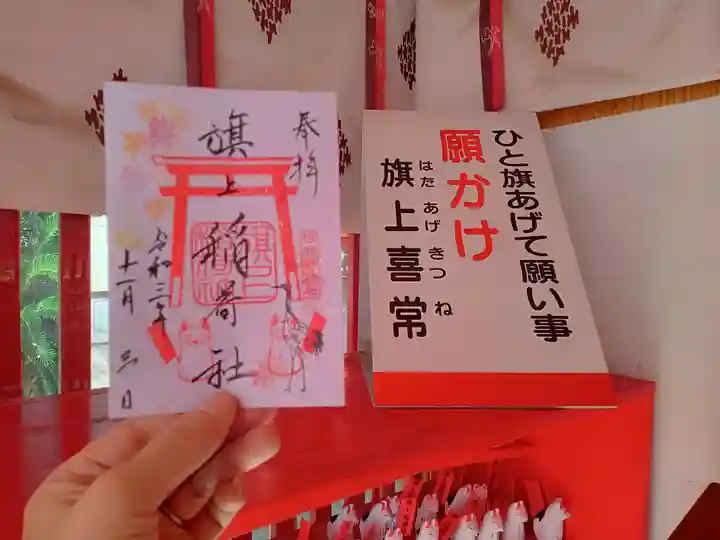 奉拝
旗上稲荷社
令和三年
十一月三日
ひと旗あげて願い事
願かけ
はたあげきつね
旗上喜常